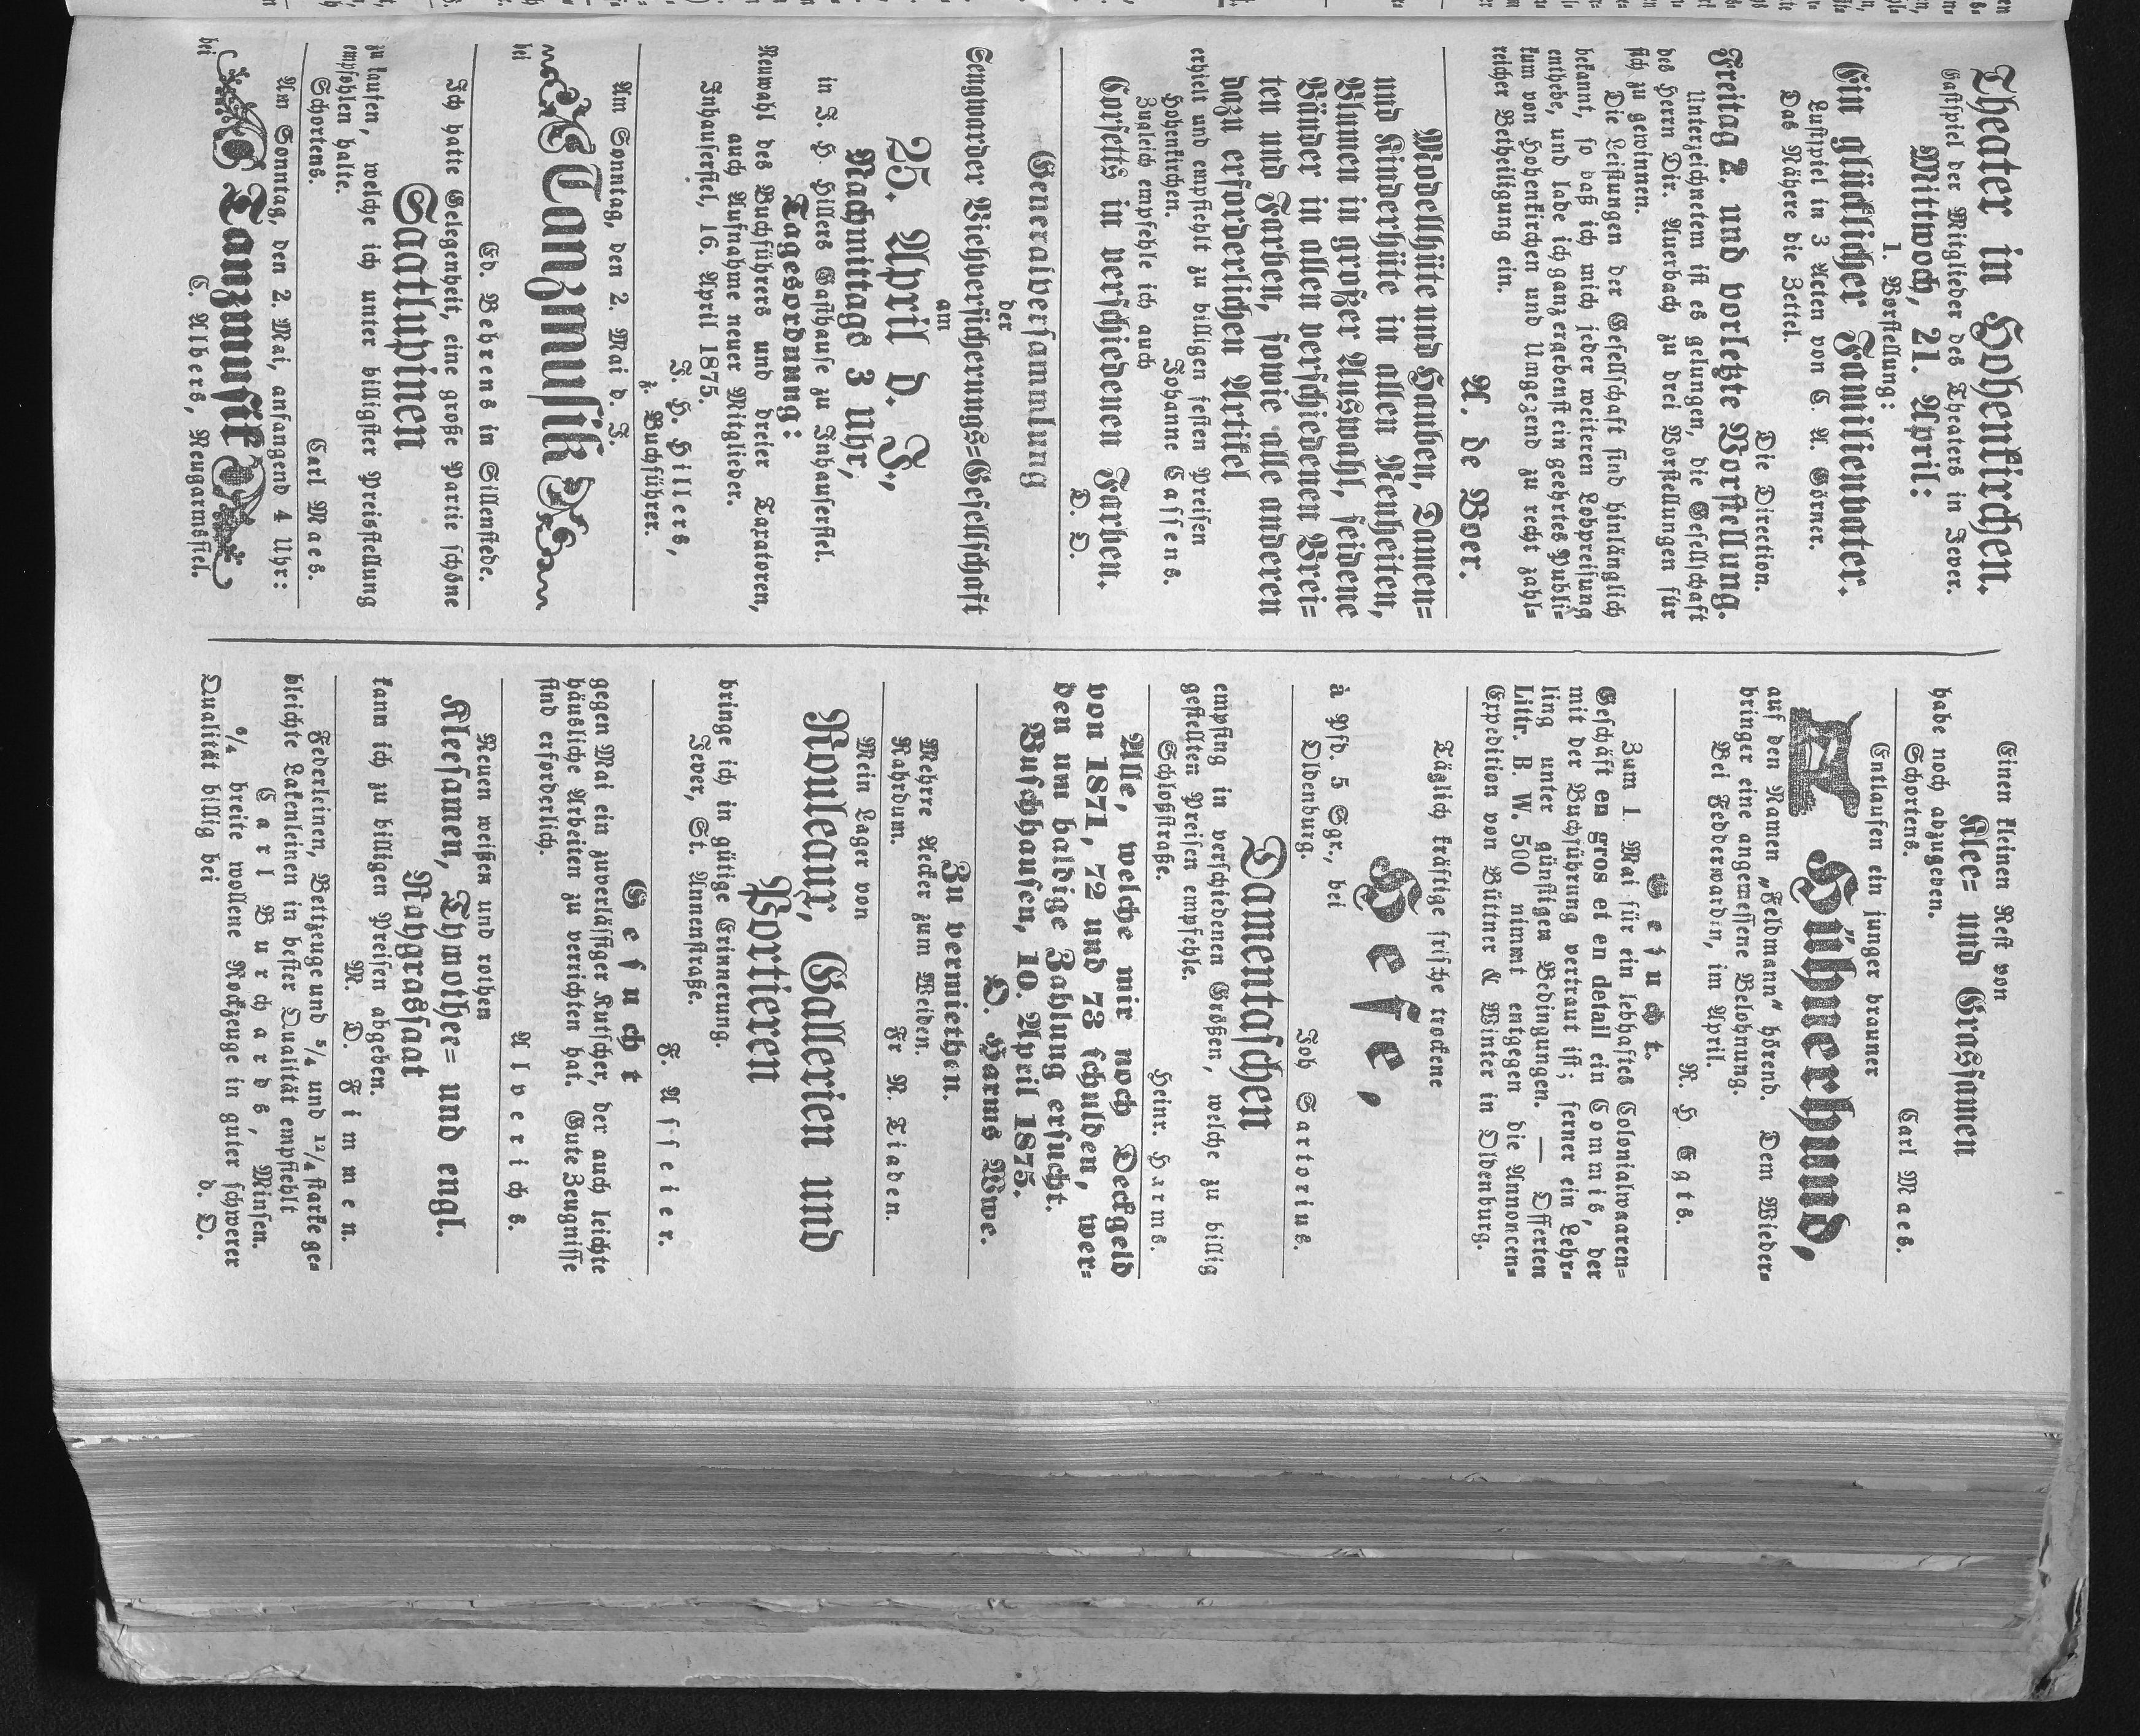 Theater in Hohenkirchen.
Gastspiel der Mitglieder des Theaters in Jever.
Mittwoch, 21. April:
1. Vorstellung:
Ein glücklicher Familienvater.
Lustspiel in 3 Acten von C. A. Görner.
Das Nähere die Zettel.
Die Direction.
Freitag 2. und vorletzte Vorstellung.
Unterzeichnetem ist es gelungen, die Gesellschaft
des Herrn Dir. Auerbach zu drei Vorstellungen für
sich zu gewinnen.
Die Leistungen der Gesellschaft sind hinlänglich
bekannt, so daß ich mich jeder weiteren Lobpreisung
enthebe, und lade ich ganz ergebenst ein geehrtes Publi=
kum von Hohenkirchen und Umgegend zu recht zahl=
reicher Betheiligung ein.
A. de Boer.
Modellhüte und Hauben, Damen=
und Kinderhüte in allen Neuheiten,
Blumen in großer Auswahl, seidene
Bänder in allen verschiedenen Brei=
ten und Farben, sowie alle anderen
dazu erforderlichen Artikel
erhielt und empfiehlt zu billigen festen Preisen
Hohenkirchen. Johanne Cassens.
Zugleich empfehle ich auch
Corsetts in verschiedenen Farben.
D. O.
Generalversammlung
der
Sengwarder Viehversicherungs=Gesellschaft
am
25. April d. J.,
Nachmittags 3 Uhr,
in J. H. Hillers Gasthause zu Inhausersiel.
Tagesordnung:
Neuwahl des Buchführers und dreier Taxatoren,
auch Aufnahme neuer Mitglieder.
Inhausersiel, 16. April 1875.
J. H. Hillers,
z. Buchführer.
Am Sonntag, den 2. Mai d. J.
Tanzmusik
bei
Ed. Behrens in Sillenstede.
Ich hatte Gelegenheit, eine große Partie schöne
Saatlupinen
zu kaufen, welche ich unter billigster Preisstellung
empfohlen halte.
Schortens. Carl Maes.
Am Sonntag, den 2. Mai, anfangend 4 Uhr:
Tanzmusik
bei
C. Albers, Neugarmssiel.
Einen kleinen Rest von
Klee= und Grassamen
habe noch abzugeben.
Schortens. Carl Maes.
Entlaufen ein junger brauner
Hühnerhund,
auf den Namen „Feldmann" hörend. Dem Wieder=
bringer eine angemessene Belohnung.
Bei Fedderwarden, im April.
R. H. Egts.
Gesucht.
Zum 1. Mai für ein lebhaftes Colonialwaaren=
Geschäft en gros et en detail ein Commis, der
mit der Buchführung vertraut ist; ferner ein Lehr=
ling unter günstigen Bedingungen. — Offerten
Littr. B. W. 500 nimmt entgegen die Annoncen=
Expedition von Büttner & Winter in Oldenburg.
Täglich kräftige frische trockene
Hefe,
à Pfd. 5 Sgr., bei
Oldenburg. Joh Sartorius.
Damentaschen
empfing in verschiedenen Größen, welche zu billig
gestellten Preisen empfehle.
Schloßstraße. Heinr. Harms.
Alle, welche mir noch Deckgeld
von 1871, 72 und 73 schulden, wer=
den um baldige Zahlung ersucht.
Buschhausen, 10. April 1875.
D. Harms Wwe.
Zu vermiethen.
Mehrre Aecker zum Weiden.
Nahrdum. Fr R. Tiaden.
Mein Lager von
Rouleaux, Gallerien und
Portieren
bringe ich in gütige Erinnerung.
Jever, St. Annenstraße.
F. Asseier.
Gesucht
gegen Mai ein zuverlässiger Kutscher, der auch leichte
häusliche Arbeiten zu verrichten hat. Gute Zeugnisse
sind erforderlich.
Alverichs.
Neuen weißen und rothen
Kleesamen, Thmothee= und engl.
Raygrassaat
kann ich zu billigen Preisen abgeben.
R. D. Fimmen.
Federleinen, Bettzeuge und 5/4 und 12/4 starke ge=
bleichte Lakenleinen in bester Qualität empfiehlt
Carl Burchards, Minsen.
6/4 breite wollene Rockzeuge in guter schwerer
Qualität billig bei d. O.